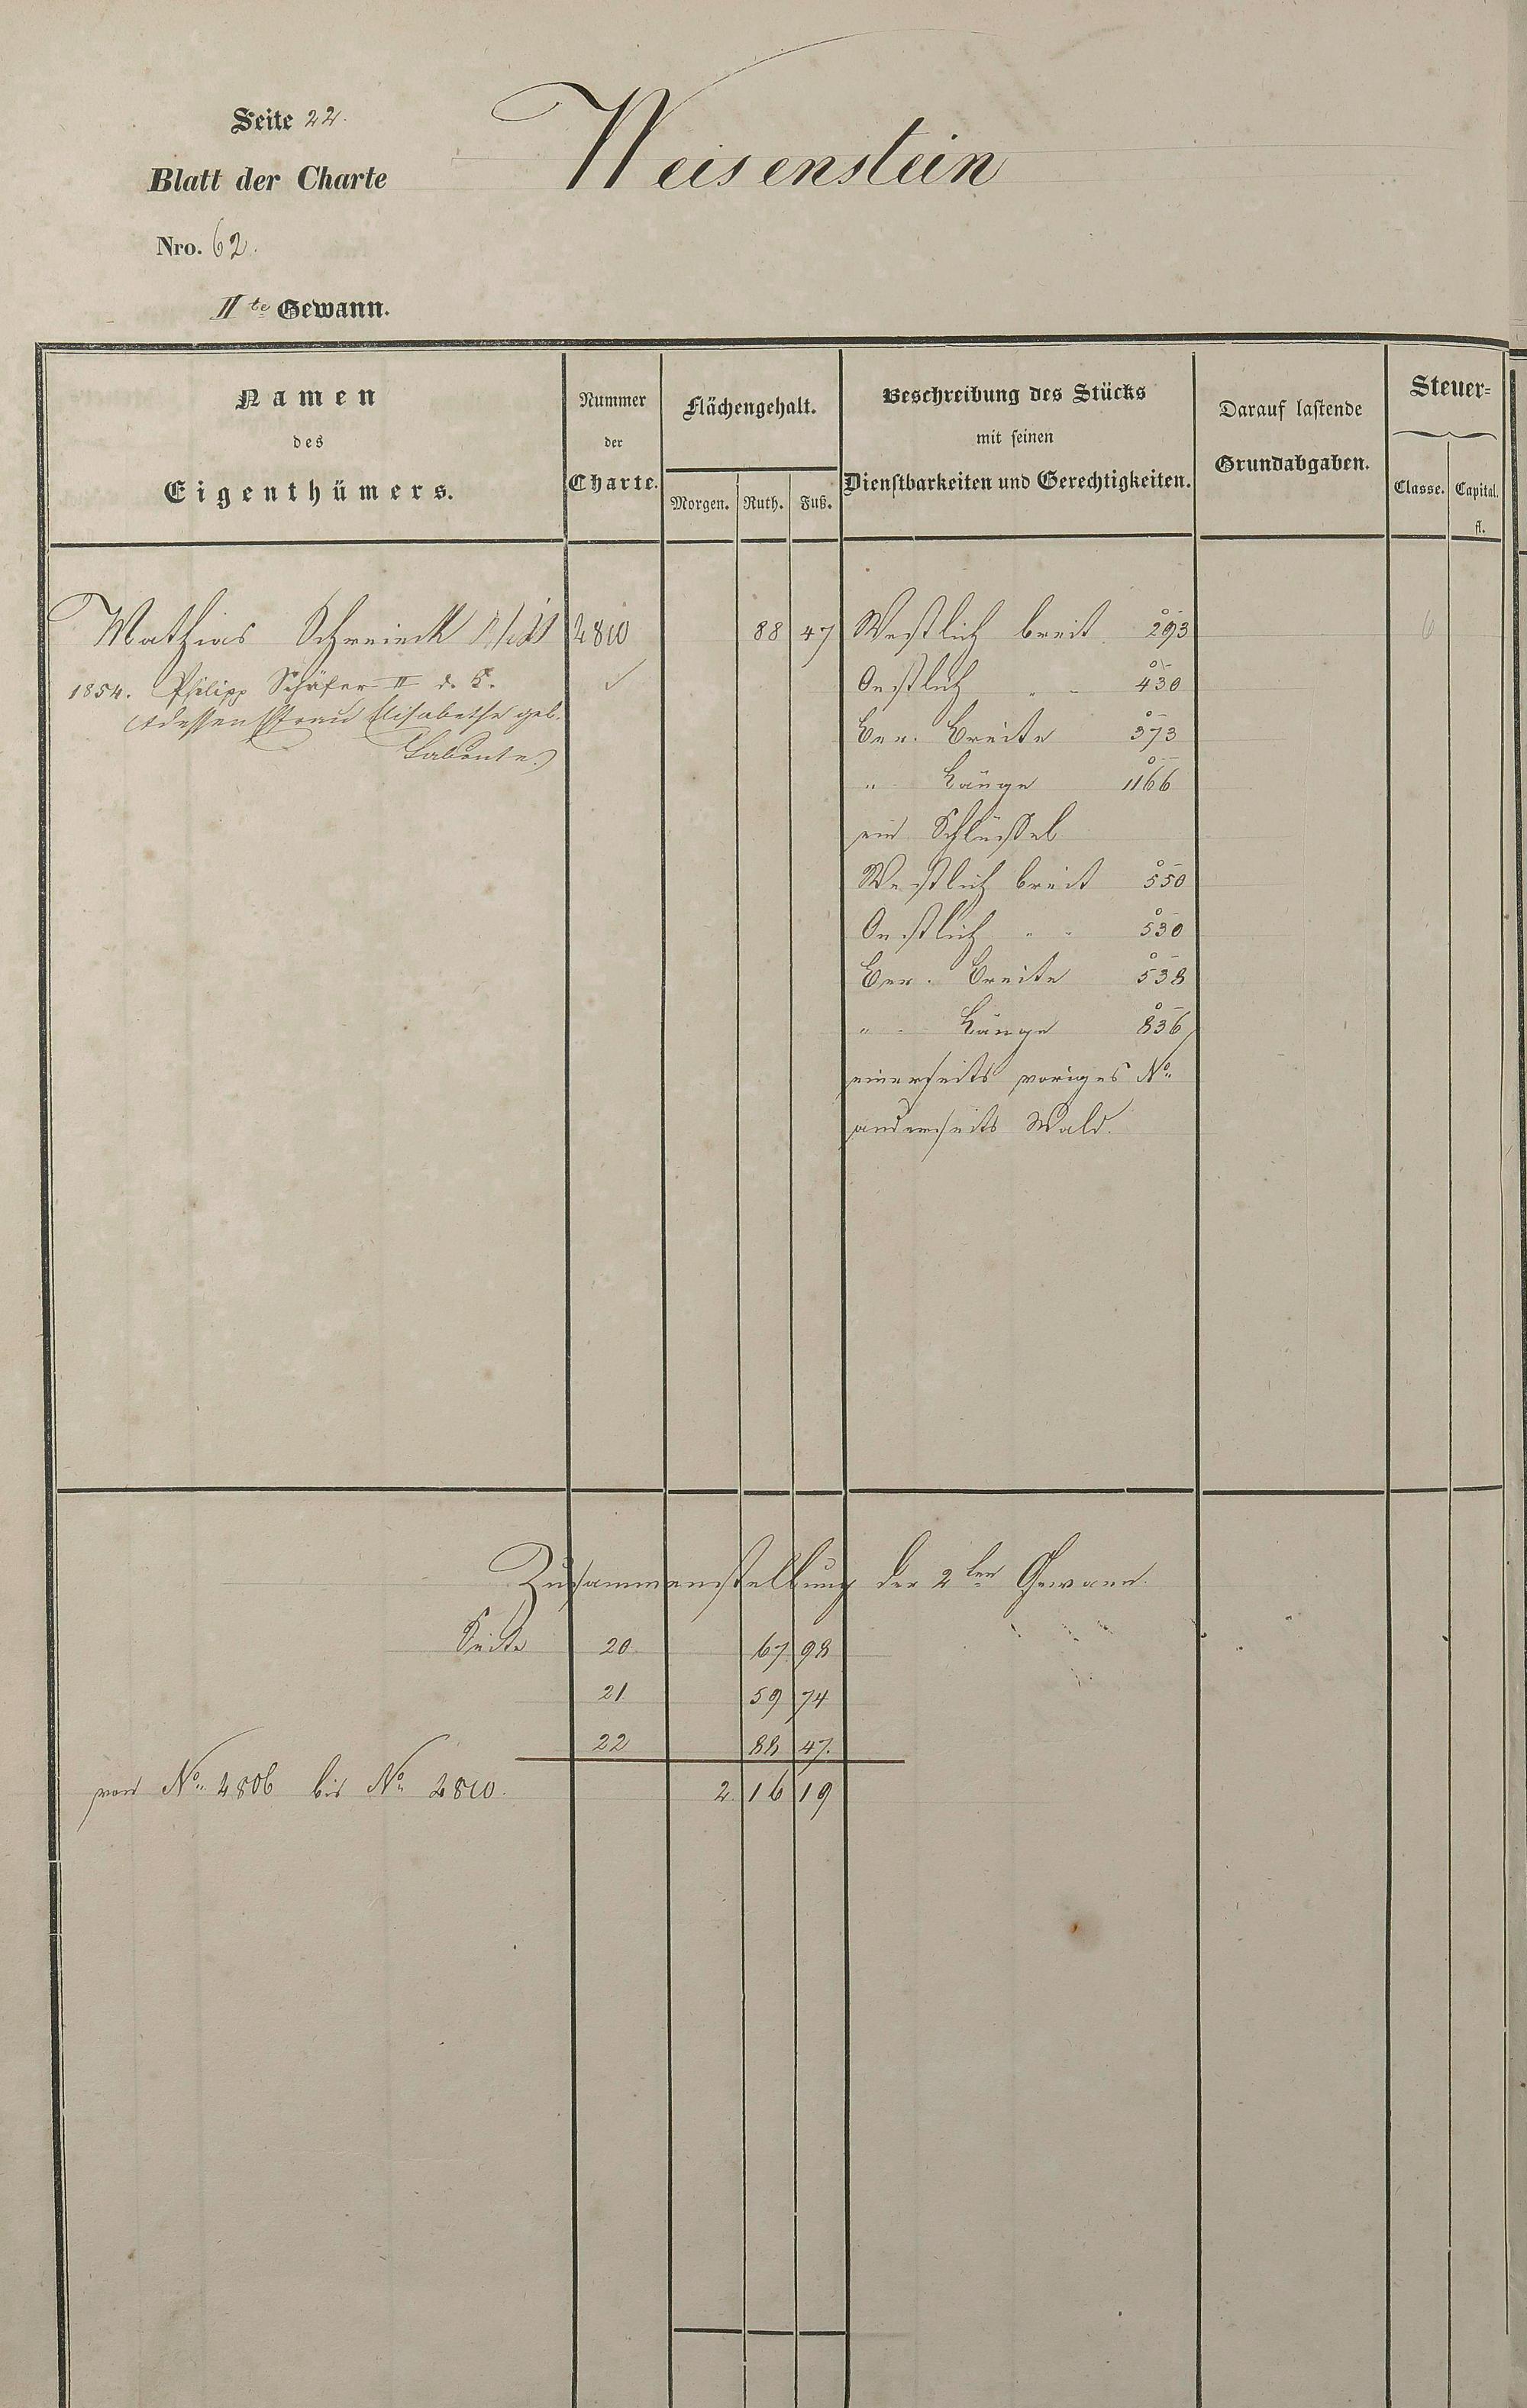 Seite 22.
Weisenstein
Blatt der Charte
Nro. 62.
IIte Gewann.
Namen
des
Eigenthümers.
Nummer
der
Charte.
Flächengehalt.
Morgen. Ruth. Fuß.
Beschreibung des Stücks
mit seinen
Dienstbarkeiten und Gerechtigkeiten.
Darauf lastende
Grundabgaben.
Steuer=
Classe. Capital.
fl.
Mathias Schreieck 2810 88 47 Westlich breit 293 6
1854. Philipp Schäfer II d. K. ✓ Oestlich " " 430
dessen Frau Elisabetha geb. Ver. Breite 373
Labonte.) " Länge 1166
ein Schlüssel
Westlich breit 550
Oestlich " " 530
Ver. Breite 538
" Länge 836
einerseits voriges No.
anderseits Wald.
Zusammenstellung der 2ten Gewann.
Seite 20 67 98
21 59 74
22 88 47.
von No. 2806 bis No. 2810. 2 16 19